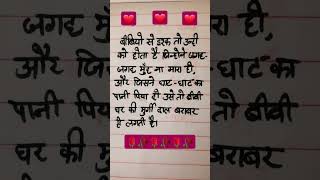 बीवियों से इश्क तो उन्ही
को होता है जिन्होंने जगह-
जगह मुँह ना मारा हो,
और जिसने घाट-घाट का
पानी पिया हो उसे तो बीवी
घर की मुर्गी दाल बराबर
ही लगती है।